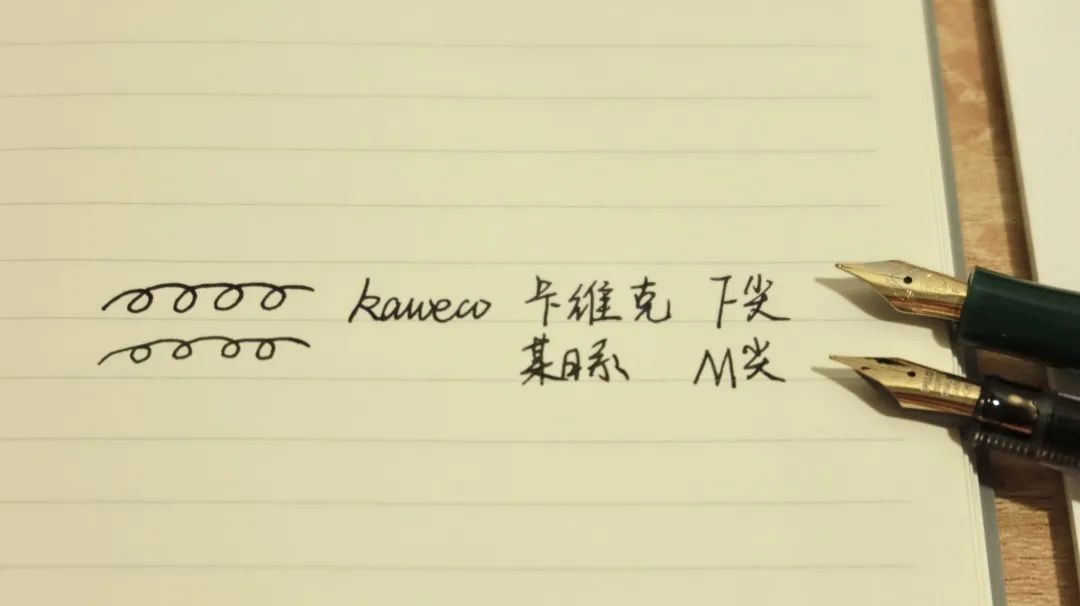 kaweco 卡维克 F尖
某日系 M尖